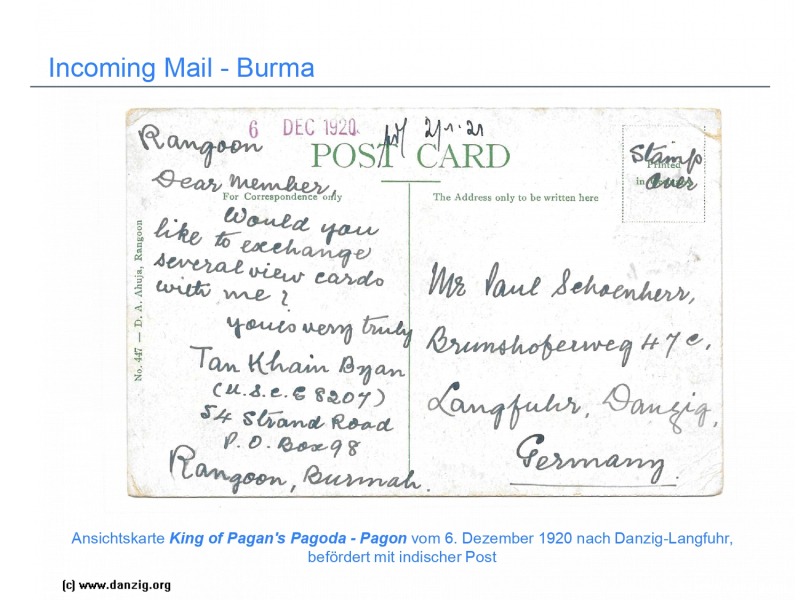 Incoming Mail - Burma
6 DEC 1920
2/1.21
Rangoon
POST CARD
Stamp
over
Printed
in
Dear Member,
For Correspondence only
The Address only to be written here
Would you
like to exchange
several view cards
with me?
yours very truly
Tan Khain Byan
(U.S.C.E 8207)
54 Strand Road
P.O. Box 98
Rangoon, Burmah.
No. 447 — D. A. Ahuja, Rangoon
Mr Paul Schoenherr,
Brunshoferweg 47c,
Langfuhr, Danzig,
Germany.
Ansichtskarte King of Pagan's Pagoda - Pagon vom 6. Dezember 1920 nach Danzig-Langfuhr,
befördert mit indischer Post
(c) www.danzig.org